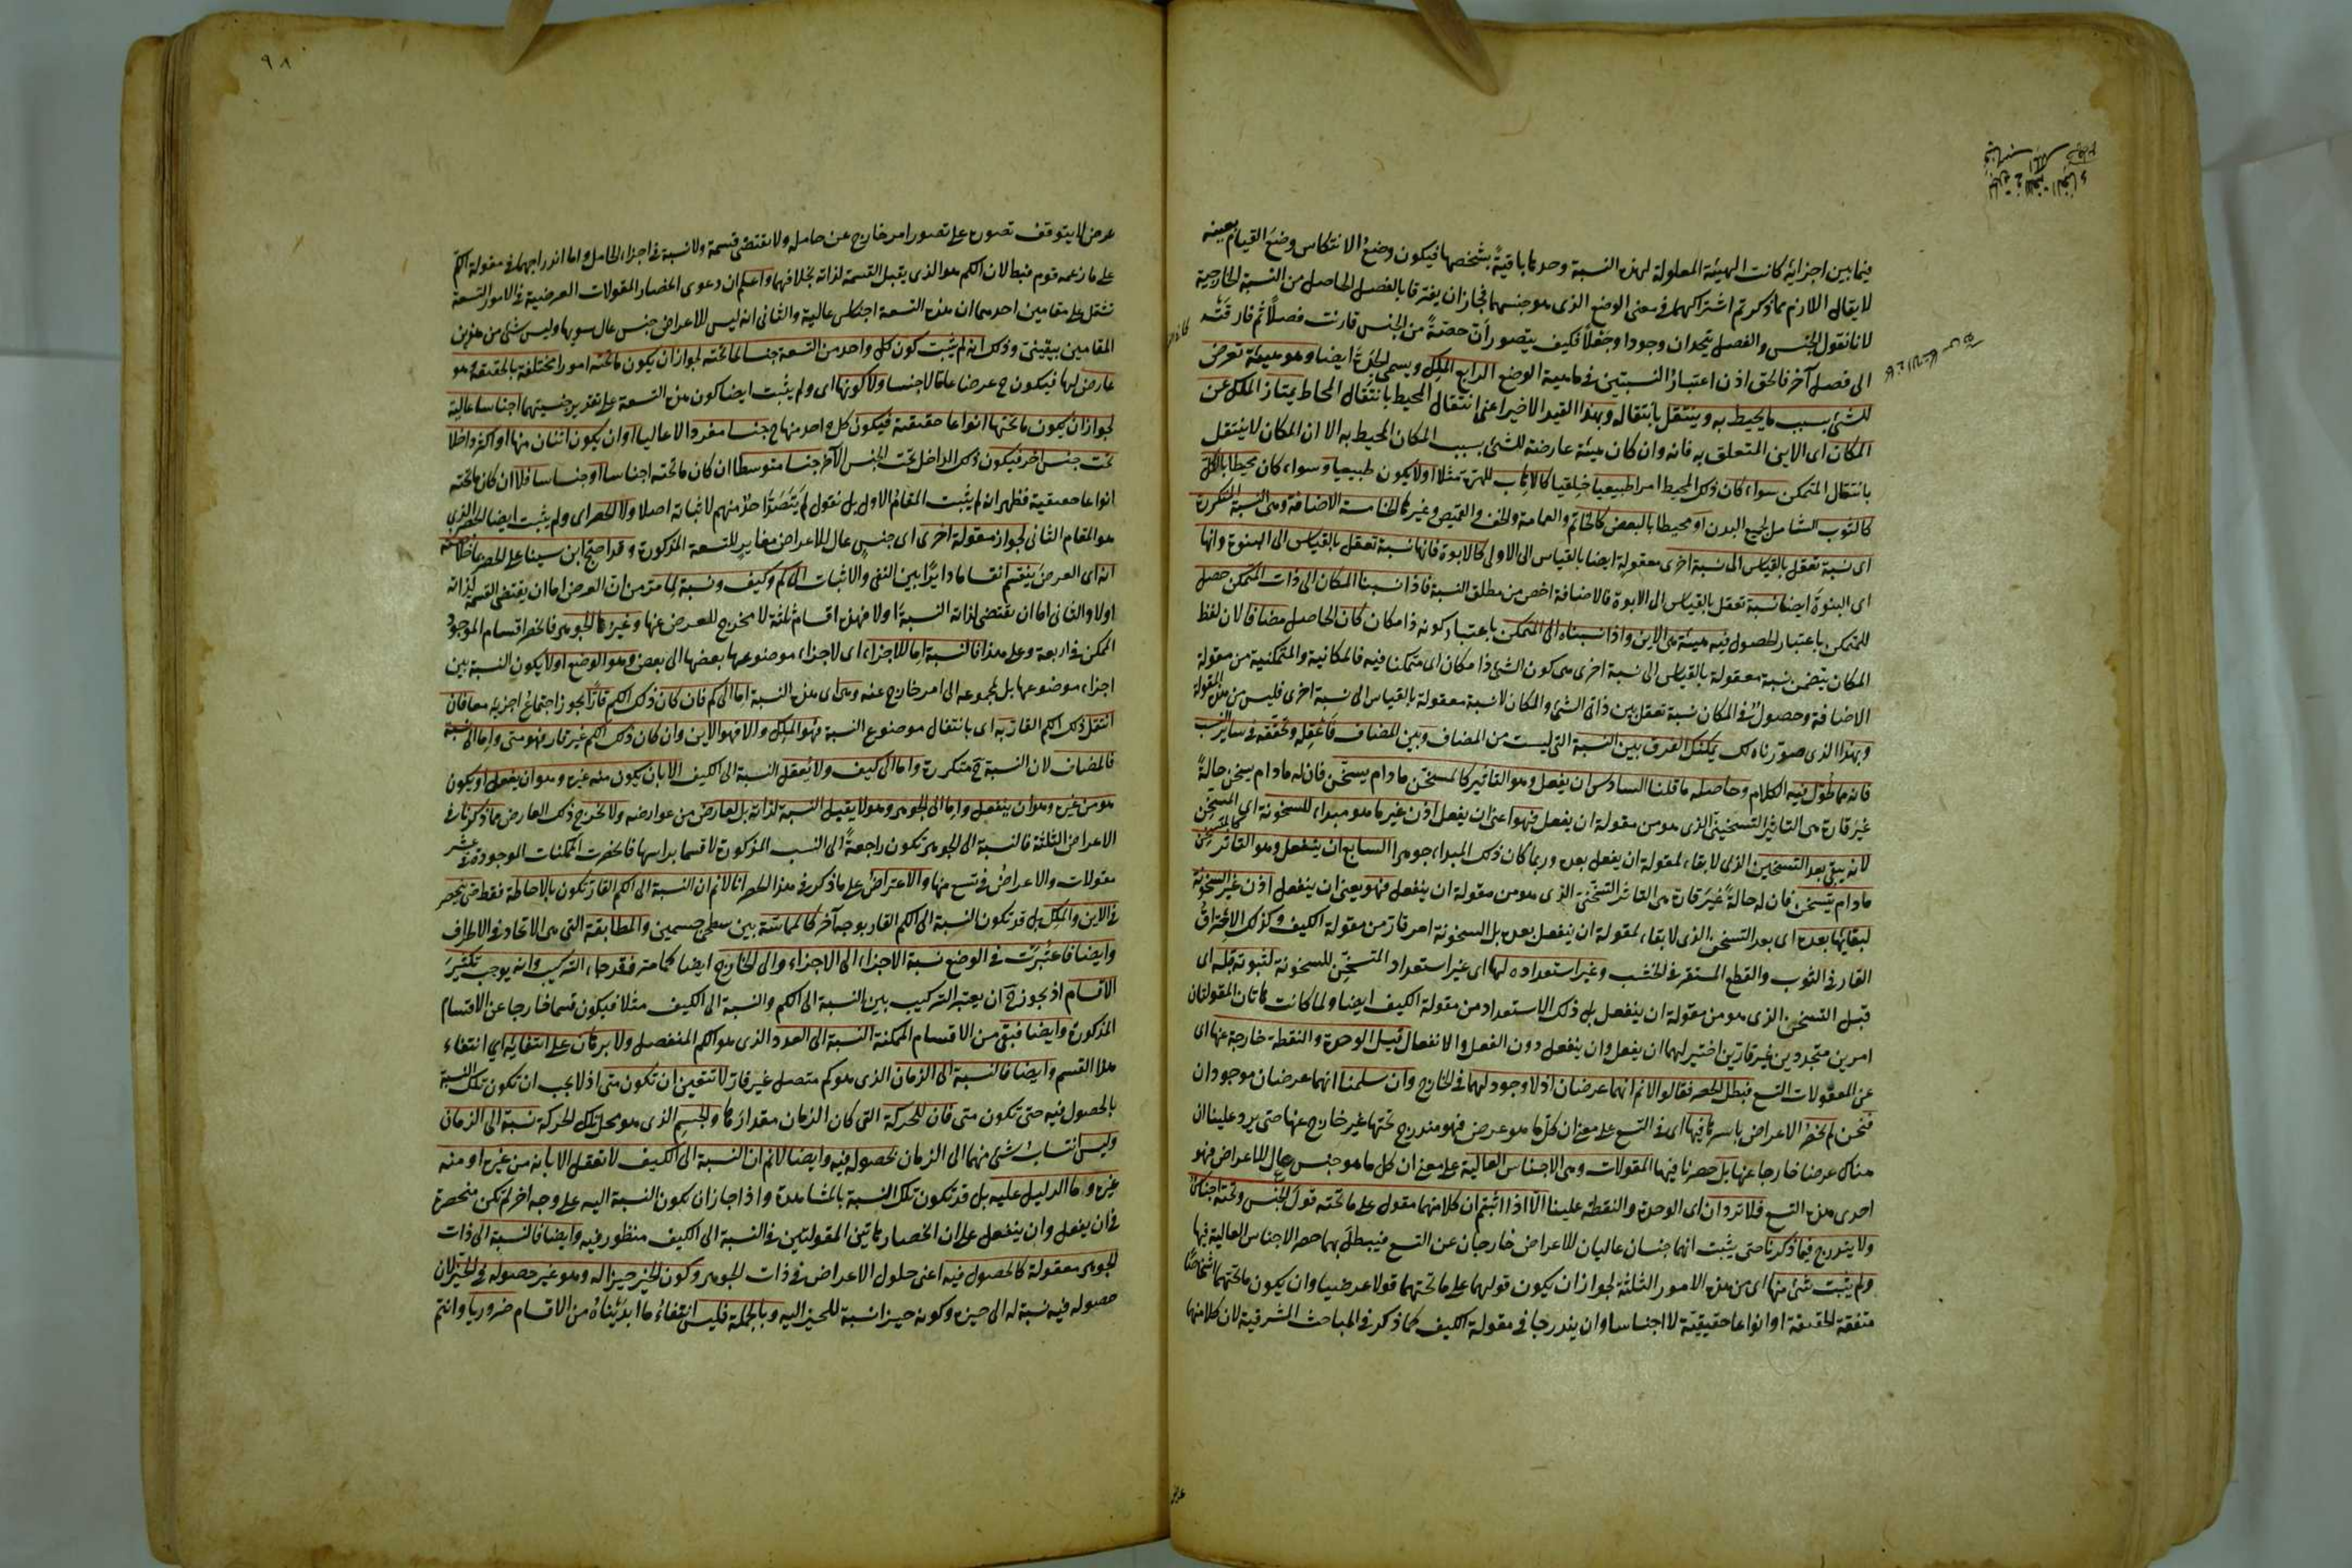 فيما بين اجزائه كانت الهيئة المعلولة لهذه النسبة وحدها باقيةً بشخصها فيكون وضع الانتكاس وضع القيام بعينه
لا يقال اللازم مما ذكرتم اشتراكهما في معنى الوضع الذى هو جنسهما فجاز ان يفترقا بالفصل الحاصل من النسبة الخارجية
لانا نقول الجنس والفصل يتحدان وجودا وجعلاً فكيف يتصور أن حصةً من الجنس قارنت فصلاً ثم فارقته
الى فصل آخر فالحق اذن اعتبار النسبتين في ماهية الوضع الرابع الملك ويسمى الجدة ايضا وهو هيئة تعرض
للشئ بسبب ما يحيط به وينتقل بانتقاله وبهذا القيد الاخير اعنى انتقال المحيط بانتقال المحاط يمتاز الملك عن
المكان اى الاين المتعلق به فانه وان كان هيئة عارضة للشئ بسبب المكان المحيط به الا ان المكان لا ينتقل
بانتقال المتمكن سواء كان ذلك المحيط امرا طبيعيا خلقيا كالاهاب للهرة مثلا اولا يكون طبيعيا وسواء كان محيطا بالكل
كالثوب الشامل لجميع البدن او محيطا بالبعض كالخاتم والعمامة والخف والقميص وغيرها الخامسة الاضافة وهى النسبة المتكررة
اى نسبة تعقل بالقياس الى نسبة اخرى معقولة ايضا بالقياس الى الاولى كالابوة فانها نسبة تعقل بالقياس الى البنوة وانها
اى البنوة ايضا نسبة تعقل بالقياس الى الابوة فالاضافة اخص من مطلق النسبة فاذا نسبنا المكان الى ذات المتمكن حصل
للمتمكن باعتبار الحصول فيه هيئة هى الاين واذا نسبناه الى المتمكن باعتبار كونه ذا مكان كان الحاصل مضافا لان لفظ
المكان يتضمن نسبة معقولة بالقياس الى نسبة اخرى هى كون الشئ ذا مكان اى متمكنا فيه فالمكانية والمتمكنية من مقولة
الاضافة وحصول الشئ في المكان نسبة تعقل بين ذاتى الشئ والمكان لا نسبة معقولة بالقياس الى نسبة اخرى فليس من هذه المقولة
وبهذا الذى صورناه لك يمكنك الفرق بين النسبة التى ليست من المضاف وبين المضاف فاعقله وتحققه في سائر النسب
فانه مما طول فيه الكلام وحاصله ما قلنا السادس ان يفعل وهو التأثير كالمسخن ما دام يسخن فان له ما دام يسخن حالةً
غير قارة هى التاثير التسخينى الذى هو من مقولة ان يفعل فهو اعنى ان يفعل اذن غير ما هو مبداء للسخونة اى المسخن
لانه يبقى بعد التسخين الذى لا بقاء لمقولة ان يفعل بعده وربما كان ذلك المبداء جوهرا السابع ان ينفعل وهو التأثر كالمتسخن
ما دام يتسخن فان له حالةً غير قارة هى التاثر التسخنى الذى هو من مقولة ان ينفعل فهو يعنى ان ينفعل اذن غير السخونة
لبقائها بعده اى بعد التسخن الذى لا بقاء لمقولة ان ينفعل بعده بل السخونة امر قار من مقولة الكيف وكذلك الاحتراق
القار في الثوب والقطع المستقر في الخشب وغير استعداده لها اى غير استعداد المتسخن للسخونة لثبوته قبله اى
قبل التسخن الذى هو من مقولة ان ينفعل بل ذلك الاستعداد من مقولة الكيف ايضا ولما كانت هاتان المقولتان
امرين متجددين غير قارين اختير لهما ان يفعل وان ينفعل دون الفعل والانفعال قيل الوحدة والنقطة خارجة عنها اى
عن المقولات التسع فبطل الحصر فقالوا لا نم انهما عرضان اذ لا وجود لهما في الخارج وان سلمنا انهما عرضان موجودان
فنحن لم نحصر الاعراض باسرها فيها اى في التسع على معنى ان كل ما هو عرض فهو مندرج تحتها غير خارج عنها حتى يرد علينا ان
هناك عرضا خارجا عنها بل حصرنا فيها المقولات وهى الاجناس العالية على معنى ان كل ما هو جنس عال للاعراض فهو
احدى هذه التسع فلا تردان اى الوحدة والنقطة علينا الا اذا اثبتم ان كلا منهما مقول على ما تحته قول الجنس وتحته اجناس
ولا يندرج فيما ذكرنا حتى يثبت انهما جنسان عاليان للاعراض خارجان عن التسع فيبطل بهما حصر الاجناس العالية فيها
ولم يثبت شئ منها اى من هذه الامور الثلثة لجواز ان يكون قولهما على ما تحتهما قولا عرضيا وان يكون ما تحتهما اشخاصا
متفقة الحقيقة او انواعا حقيقية لا اجناسا وان يندرجا في مقولة الكيف كما ذكر في المباحث المشرقية لان كلا منهما
٩٨
عرض لا يتوقف تصوره على تصور امر خارج عن حامله ولا يقتضى قسمة ولا نسبة في اجزاء الحامل واما اندراجهما في مقولة الكم
على ما زعمه قوم فبط لان الكم هو الذى يقبل القسمة لذاته بخلافهما واعلم ان دعوى انحصار المقولات العرضية في الامور التسعة
تشتمل على مقامين احدهما ان هذه التسعة اجناس عالية والثانى انه ليس للاعراض جنس عال سويها وليس شئ من هذين
المقامين بيقينى وذلك انه لم يثبت كون كل واحد من التسعة جنسا لما تحته لجواز ان يكون ما تحته امورا مختلفة بالحقيقة وهو
عارض لها فيكون ح عرضا عاما لا جنسا ولا كونها اى ولم يثبت ايضا كون هذه التسعة على تقدير جنسيتهما اجناسا عالية
لجواز ان يكون ما تحتها انواعا حقيقية فيكون كل احد منها ح جنسا مفردا لا عاليا او ان يكون اثنان منها او اكثر داخلا
تحت جنس آخر فيكون ذلك الداخل تحت الجنس الآخر جنسا متوسطا ان كان ما تحته اجناسا او جنسا سافلا ان كان ما تحته
انواعا حقيقية فظهر انه لم يثبت المقام الاول بل نقول لم يتصد احد منهم لاثباته اصلا ولا الحصر اى ولم يثبت ايضا الحصر الذى
هو المقام الثانى لجواز مقولة اخرى اى جنس عال للاعراض مغاير للتسعة المذكورة وقد احتج ابن سينا على الحصر بما خلاصته
انه اى العرض ينقسم انقساما دائرا بين النفى والاثبات الى كم وكيف ونسبة لما مر من ان العرض اما ان يقتضى القسمة لذاته
اولا والثانى اما ان يقتضى لذاته النسبة اولا فهذه اقسام ثلثة لا مخرج للعرض عنها وغيرها الجوهر فانحصر اقسام الموجود
الممكن في اربعة وعلى هذا فالنسبة اما للاجزاء اى لاجزاء موضوعها بعضها الى بعض وهو الوضع اولا يكون النسبة بين
اجزاء موضوعها بل لمجموعه الى امر خارج عنه وهى اى هذه النسبة اما الى كم فان كان ذلك الكم قارا يجوز اجتماع اجزائه معا فان
انتقل ذلك الكم القار به اى بانتقال موضوع النسبة فهو الملك والا فهو الاين وان كان ذلك الكم غير قار فهو متى واما الى نسبة
فالمضاف لان النسبة ح متكررة واما الى كيف ولا يعقل النسبة الى الكيف الا بان يكون منه غيره وهو ان يفعل او يكون
هو من غيره وهو ان ينفعل واما الى الجوهر وهو لا يقبل النسبة لذاته بل لعارض من عوارضه ولا يخرج ذلك العارض مما ذكرنا في
الاعراض الثلثة فالنسبة الى الجوهر تكون راجعةً الى النسب المذكورة لا قسما براسها فانحصرت الممكنات الموجودة في عشر
مقولات والاعراض في تسع منها والاعتراض على ما ذكر في هذا الحصر انا لا نم ان النسبة الى الكم القار تكون بالاحاطة فقط حتى ينحصر
في الاين والملك بل قد تكون النسبة الى الكم القار بوجه آخر كالمماسة بين سطحى جسمين والمطابقة التى هى الاتحاد في الاطراف
وايضا فاعتبرت في الوضع نسبة الاجزاء الى الاجزاء والى الخارج ايضا كما مر فقد جاء التركيب وانه يوجب تكثير
الاقسام اذ يجوز ح ان يعتبر التركيب بين النسبة الى الكم والنسبة الى الكيف مثلا فيكون قسما خارجا عن الاقسام
المذكورة وايضا فبقى من الاقسام الممكنة النسبة الى العدد الذى هو الكم المنفصل ولا برهان على انتفائه اى انتفاء
هذا القسم وايضا فالنسبة الى الزمان الذى هو كم متصل غير قار لا تتعين ان تكون متى اذ لا يجب ان تكون تلك النسبة
بالحصول فيه حتى تكون متى فان للحركة التى كان الزمان مقدارها وللجسم الذى هو محل تلك الحركة نسبة الى الزمان
وليس انتساب شئ منهما الى الزمان بحصوله فيه وايضا لا نم ان النسبة الى الكيف لا تعقل الا بانه من غيره او منه
غيره وما الدليل عليه بل قد تكون تلك النسبة بالمشاهدة واذا جاز ان يكون النسبة اليه على وجه آخر لم تكن منحصرة
في ان يفعل وان ينفعل على ان انحصار هاتين المقولتين في النسبة الى الكيف منظور فيه وايضا فالنسبة الى ذات
الجوهر معقولة كالحصول فيه اعنى حلول الاعراض في ذات الجوهر وكون الحيز حيزا له وهو غير حصوله في الحيز لان
حصوله فيه نسبة له الى حيزه وكونه حيزا نسبة للحيز اليه وبالجملة فليس انتفاء ما ابديناه من الاقسام ضروريا وانتم